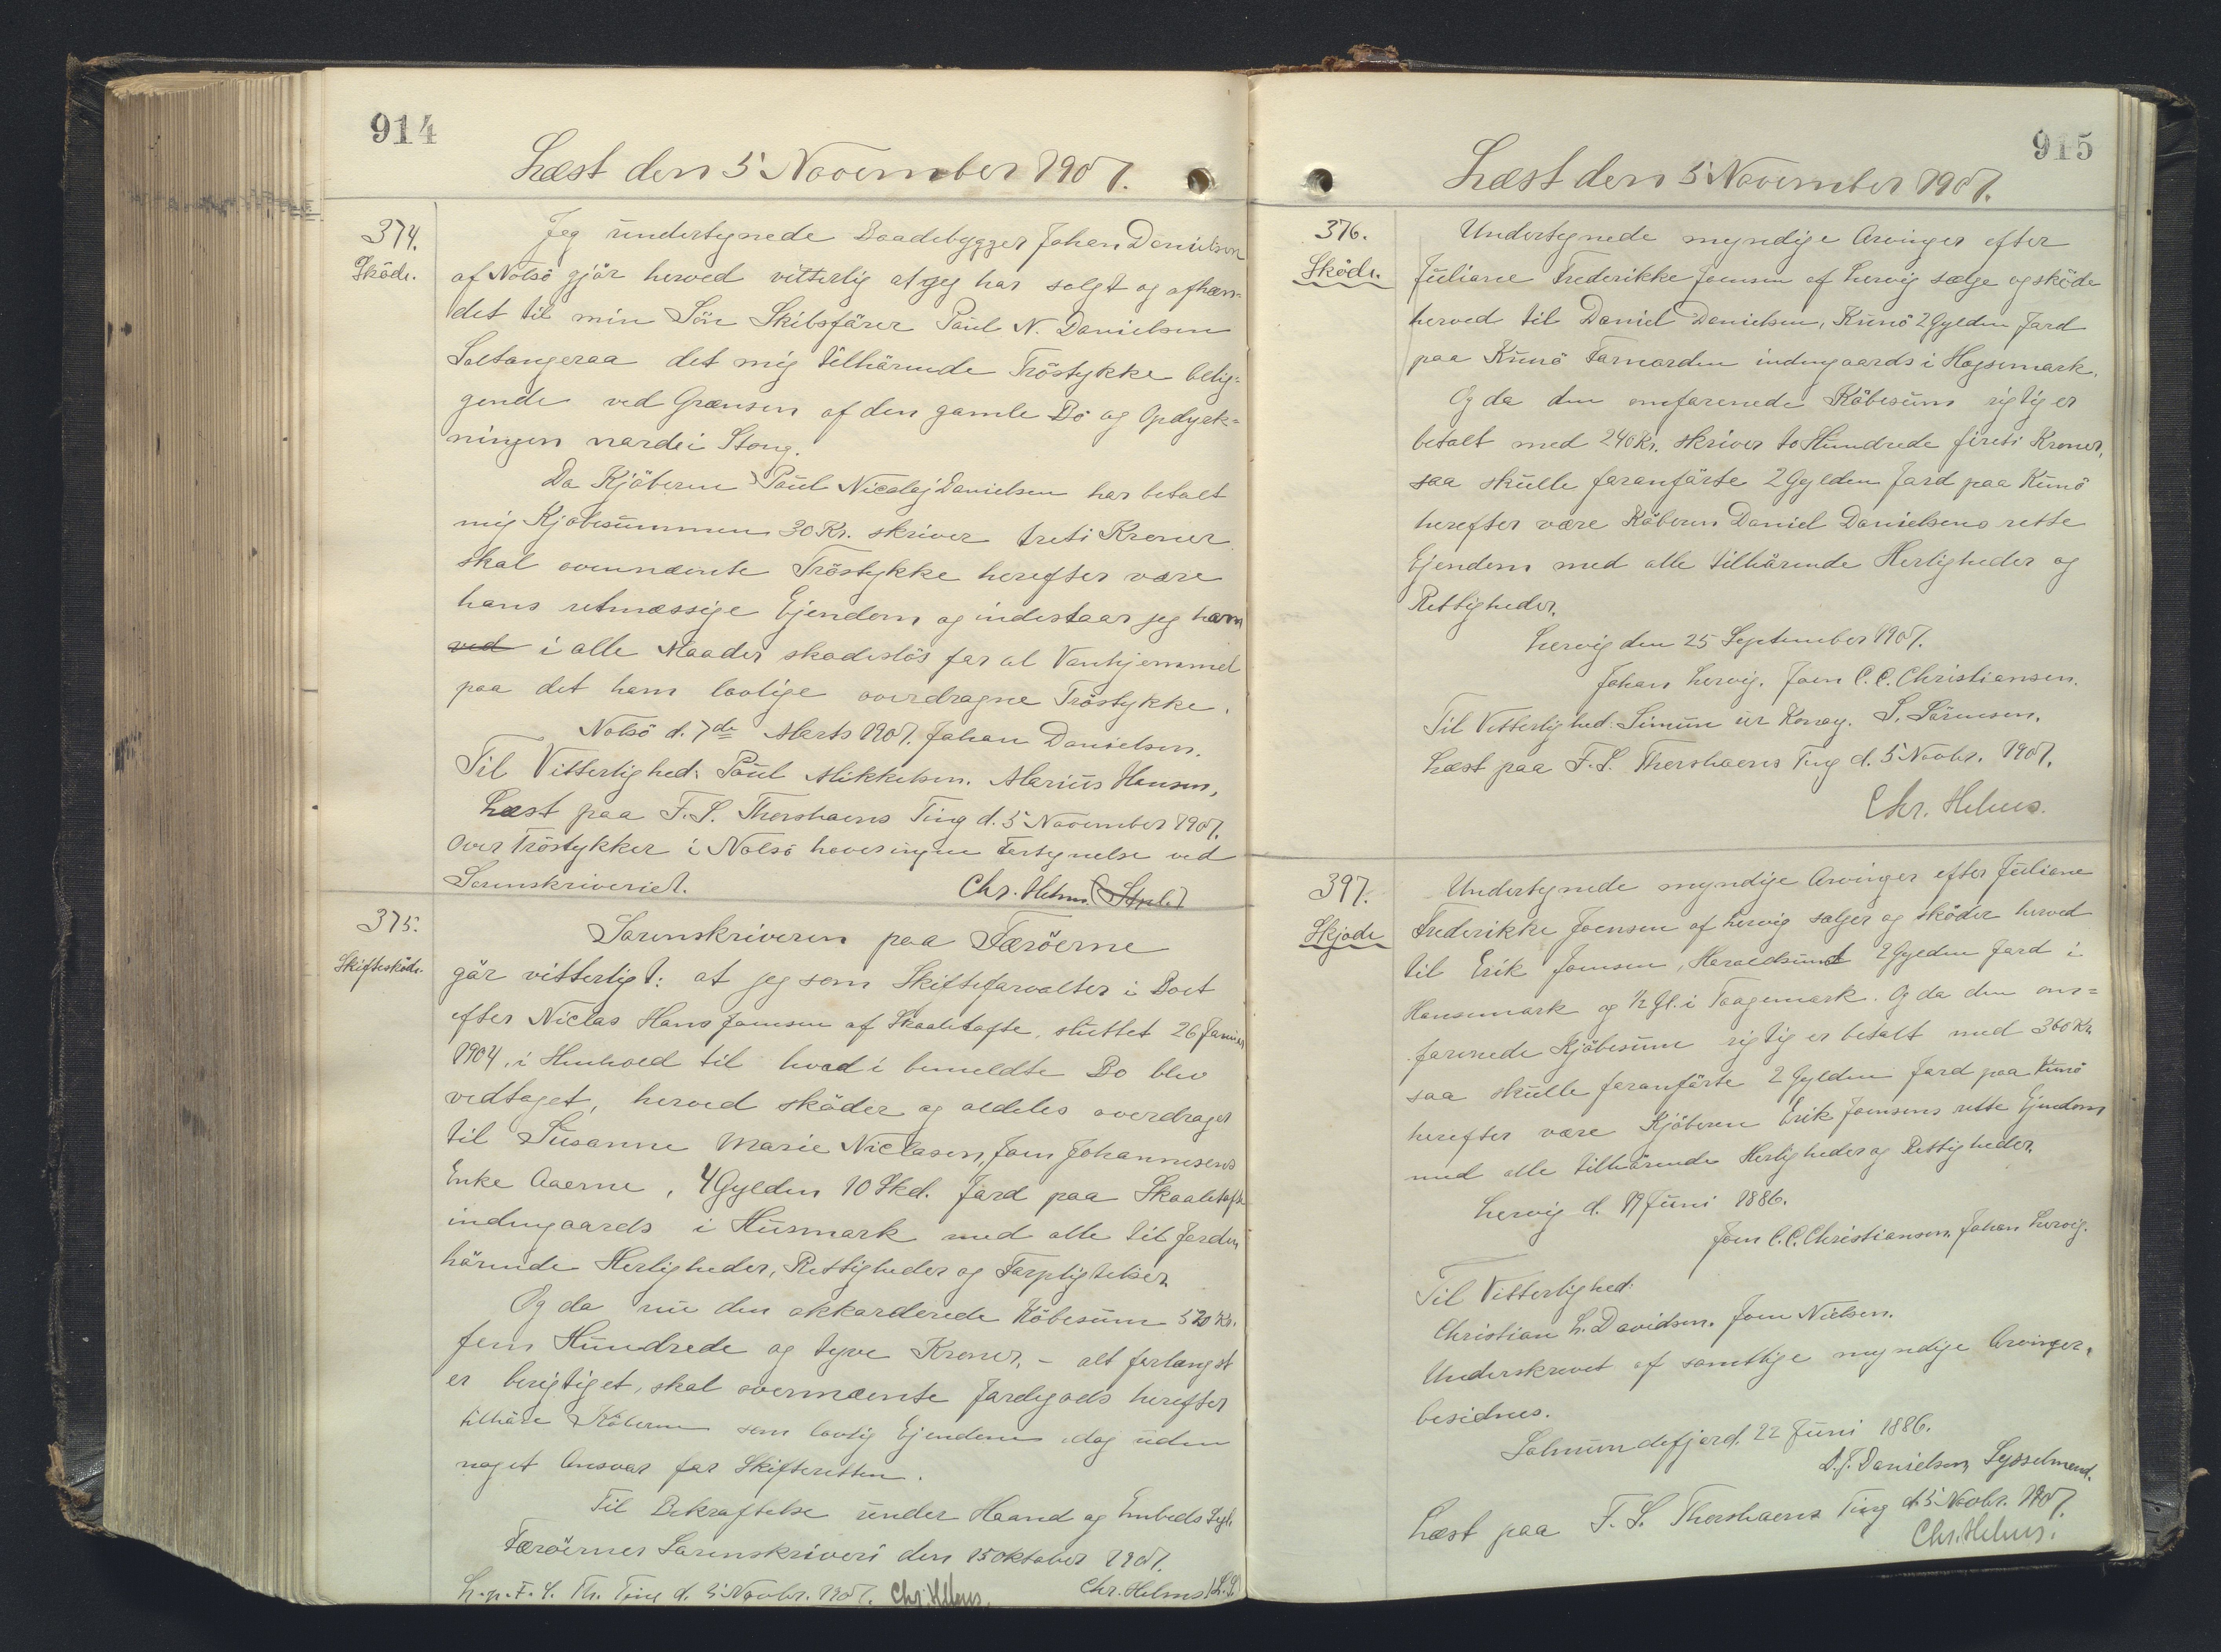 914
Læst den 5 November 1907.
374.
Sköde.
Jeg undertegnede Baadebygger Johan Danielsen
af Nolsö gjör herved vitterlig at jeg har solgt og afhæn-
det til min Sön Skibsförer Poul N. Danielsen
Saltangeraa det mig tilhörende Tröstykke belig-
gende ved Grænsen af den gamle Bö og Opdyrk-
ningen nordi i Stong.
Da Kjöberen Poul Nicolaj Danielsen har betalt
mig Kjöbesummen 30 Kr. skriver treti Kroner
skal ovennævnte Tröstykke herefter være
hans retmæssige Ejendom og indestaar jeg ham
ved i alle Maader skadeslös for al Vanhjemmel
paa det ham lovlige overdragne Tröstykke.
Nolsö d. 7de Marts 1907. Johan Danielsen.
Til Vitterlighed: Poul Mikkelsen. Marius Hansen,
Læst paa F. S. Thorshavns Ting d. 5 November 1907.
Over Tröstykker i Nolsö haves ingen Fortegnelse ved
Sorenskriveriet. Chr. Helms
375.
Skiftesköde.
Sorenskriveren paa Færöerne
gör vitterligt: at jeg som Skifteforvalter i Boet
efter Niclas Hans Joensen af Skaaletofte, sluttet 26 Januar
1904, i Henhold til hvad i bemeldte Bo blev
vedtaget, herved sköder og aldeles overdrager
til Susanne Marie Niclasen, Joen Johannesens
Enke Aaerne, 4 Gylden 10 Skd. Jord paa Skaaletofte
indengaards i Husmark med alle til Jorden
hörende Herligheder, Rettigheder og Forpligtelser.
Og da nu den akkorderede Köbesum 520 Kr.
fem Hundrede og tyve Kroner, - alt forlængst
er berigtiget, skal ovennævnte Jordegods herefter
tilhöre Köberen som lovlig Ejendom dog uden
noget Ansvar for Skifteretten.
Til Bekræftelse under Haand og Embeds Segl.
Færöernes Sorenskriveri den 15 Oktober 1907.
Chr. Helms (L.S.)
L. p. F. S. Th. Ting d. 5 Novbr. 1907. Chr. Helms.
915
Læst den 5 November 1907.
376.
Sköde.
Undertegnede myndige Arvinger efter
Juliane Frederikke Joensen af Lervig sælge og sköde
herved til Daniel Danielsen, Kunö 2 Gylden Jord
paa Kunö Farnorden indengaards i Hogsemark.
Og da den omforenede Köbesum rigtig er
betalt med 240 Kr. skriver to Hundrede fireti Kroner,
saa skulle foranförte 2 Gylden Jord paa Kunö
herefter være Köberen Daniel Danielsens rette
Ejendom med alle tilhörende Herligheder og
Rettigheder.
Lervig den 25 September 1907.
Johan Lervig. Joen C. C. Christiansen.
Til Vitterlighed: Simun úr Konoy. S. Sörensen.
Læst paa F. S. Thorshavns Ting d. 5 Novbr. 1907.
Chr. Helms.
397.
Skjöde
Undertegnede myndige Arvinger efter Juliane
Frederikke Joensen af Lervig sælger og sköder herved
til Erik Joensen, Haraldsund 2 Gylden Jord i
Hansemark og 1/2 Gl. i Toagemark. Og da den om-
forenede Kjöbesum rigtig er betalt med 360 Kr.
saa skulle foranförte 2 Gylden Jord paa Kunö
herefter være Kjöberen Erik Joensens rette Ejendom
med alle tilhörende Herligheder og Rettigheder.
Lervig d. 19 Juni 1886.
Joen C. C. Christiansen, Johan Lervig.
Til Vitterlighed:
Christian L. Davidsen. Joen Nielsen.
Underskrevet af samtlige myndige Arvinger,
bevidnes.
Solmundefjord, 22 Juni 1886.
D. J. Danielsen, Sysselmand.
Læst paa F. S. Thorshavns Ting d. 5 Novbr. 1907.
Chr. Helms.